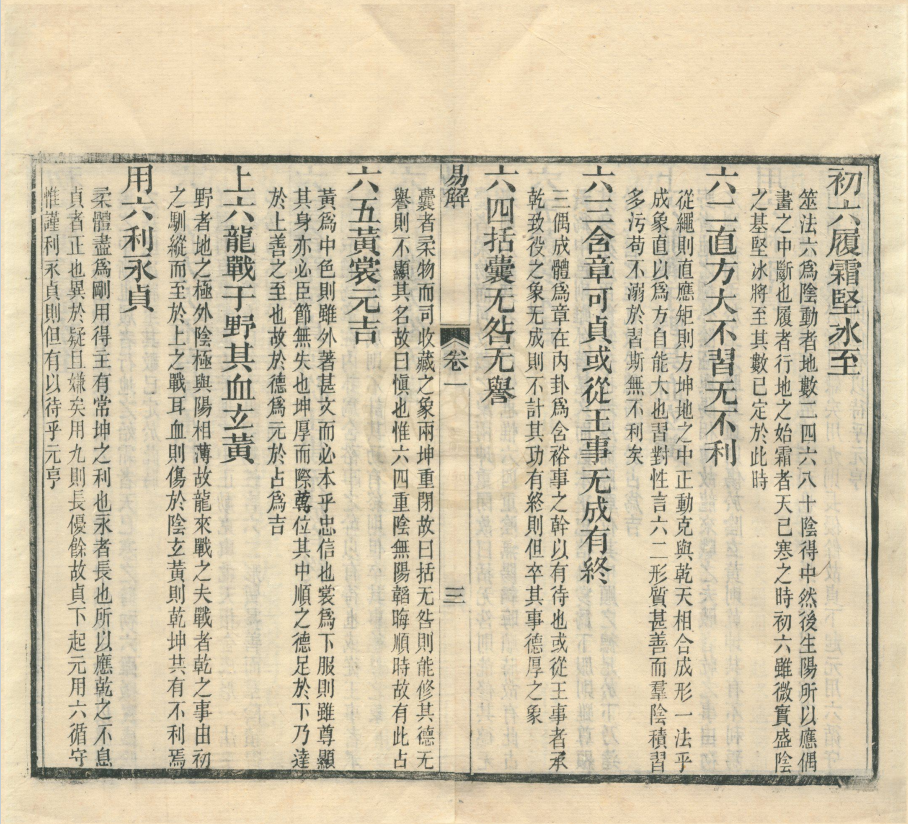 初六履霜堅冰至
筮法六爲陰動者地數二四六八十陰得中然後生陽所以應偶
畫之中斷也履者行地之始霜者天已寒之時初六雖微實盛陰
之基堅冰將至其數已定於此時
六二直方大不習无不利
從繩則直應矩則方坤地之中正動克與乾天相合成形一法乎
成象直以爲方自能大也習對性言六二形質甚善而羣陰積習
多污苟不溺於習斯無不利矣
六三含章可貞或從王事无成有終
三偶成體爲章在内卦爲含裕事之幹以有待也或從王事者承
乾致役之象无成則不計其功有終則但卒其事德厚之象
六四括囊无咎无譽
囊者柔物而司收藏之象兩坤重閉故曰括无咎則能修其德无
譽則不顯其名故曰愼也惟六四重陰無陽韜晦順時故有此占
易解
卷一
三
六五黃裳元吉
黃爲中色則雖外著甚文而必本乎忠信也裳爲下服則雖尊顯
其身亦必臣節無失也坤厚而際萬位其中順之德足於下乃達
於上善之至也故於德爲元於占爲吉
上六龍戰于野其血玄黃
野者地之極外陰極與陽相薄故龍來戰之夫戰者乾之事由初
之馴縱而至於上上之戰耳血則傷於陰玄黃則乾坤共有不利焉
用六利永貞
柔體盡爲剛用得主有常坤之利也永者長也所以應乾之不息
貞者正也異於疑且嫌矣用九則長優餘故貞下起元用六循守
惟謹利永貞則但有以待乎元亨